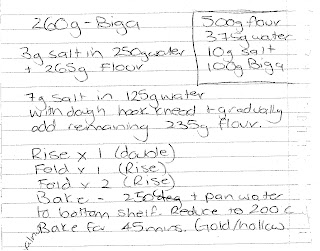 260g - Biga
500g flour
375g water
10g salt
100g Biga
3g salt in 250g water
+ 265g Flour
7g Salt in 125g water
with dough hook knead + gradually
add remaining 235g flour.
Rise x 1 (double)
Fold x 1 (Rise)
Fold x 2 (Rise)
Bake - 250deg + pan water
to bottom shelf. Reduce to 200 c
Bake for 45mins. Gold/hollow.